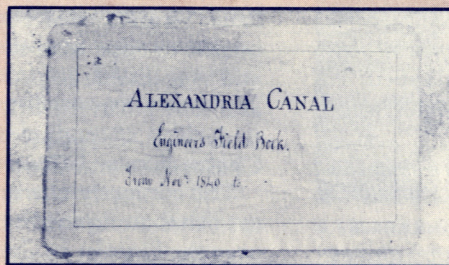 ALEXANDRIA CANAL
Engineers Field Book.
From Novr 1840 to